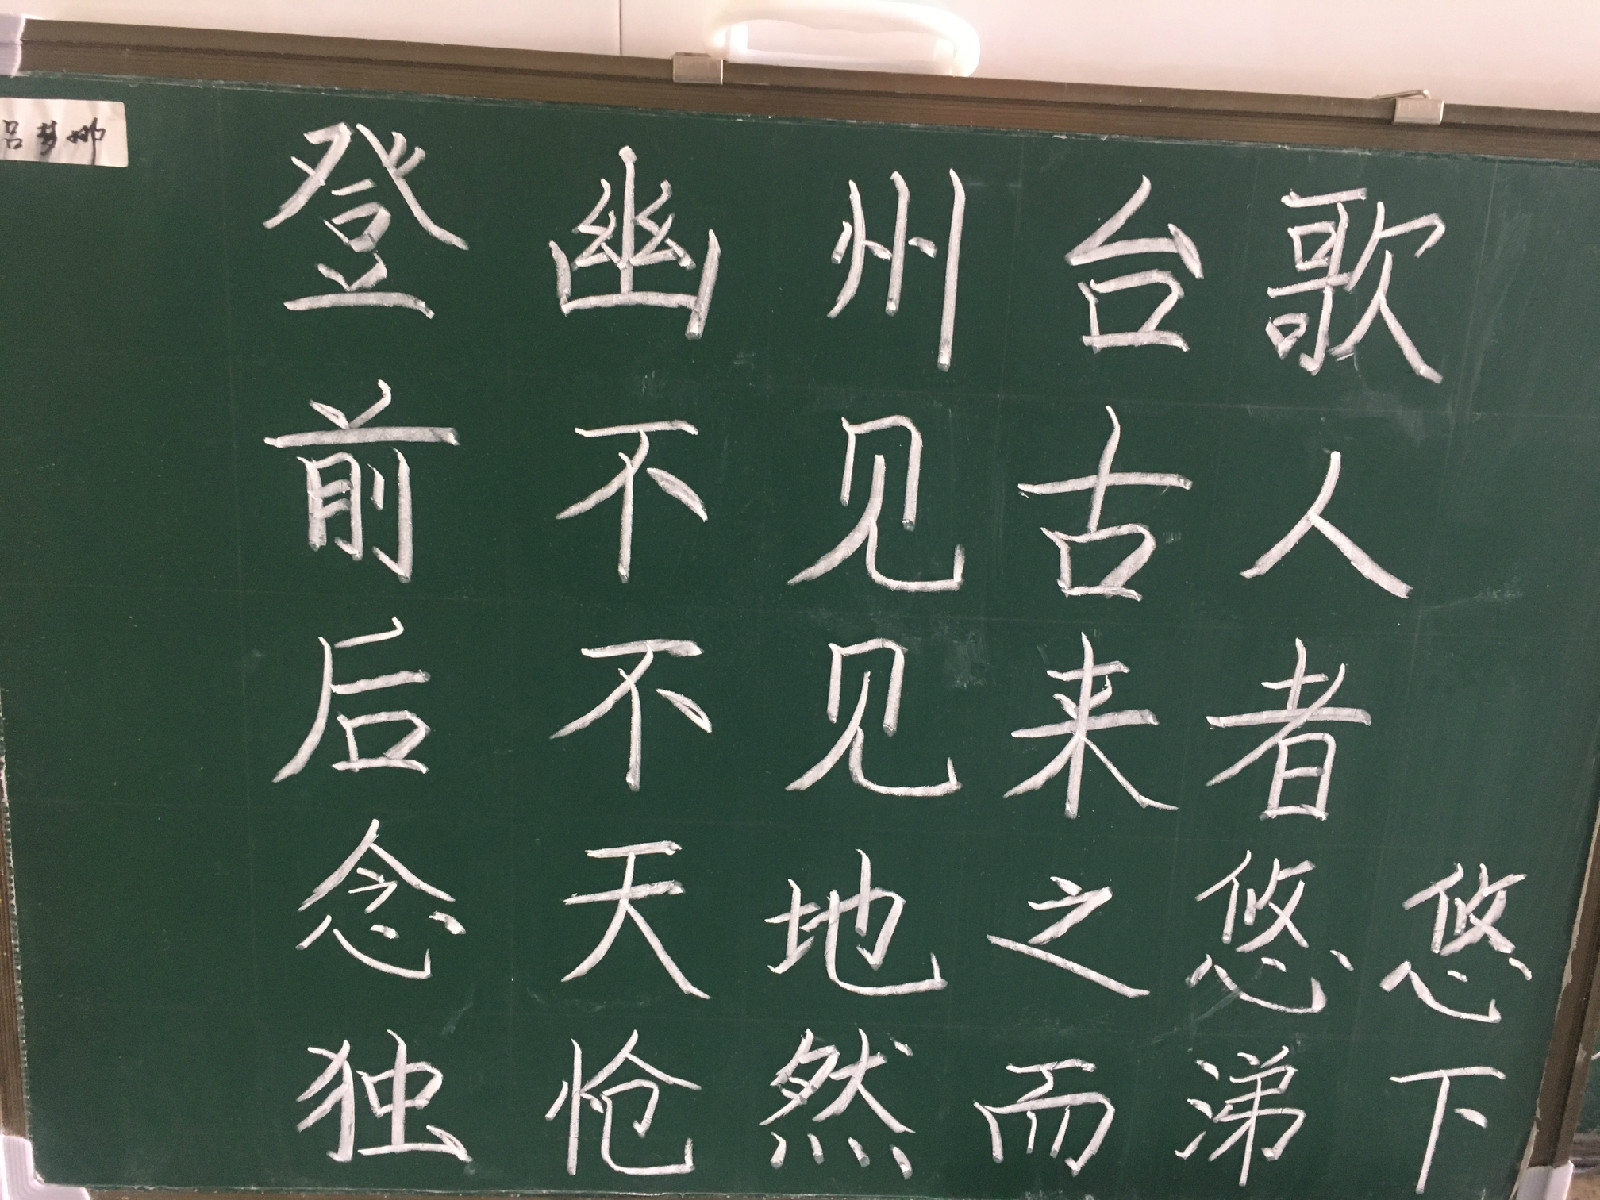 吕梦娜
登幽州台歌
前不见古人
后不见来者
念天地之悠悠
独怆然而涕下